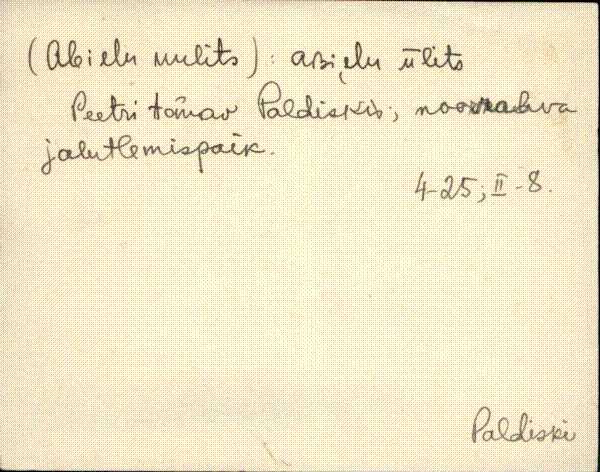 (Abielu uulits): aʙi̮elu ūlits
Peetri tänav Paldiskis, noorrahva
jalutlemispaik.
4-25; II-8.
Paldiski